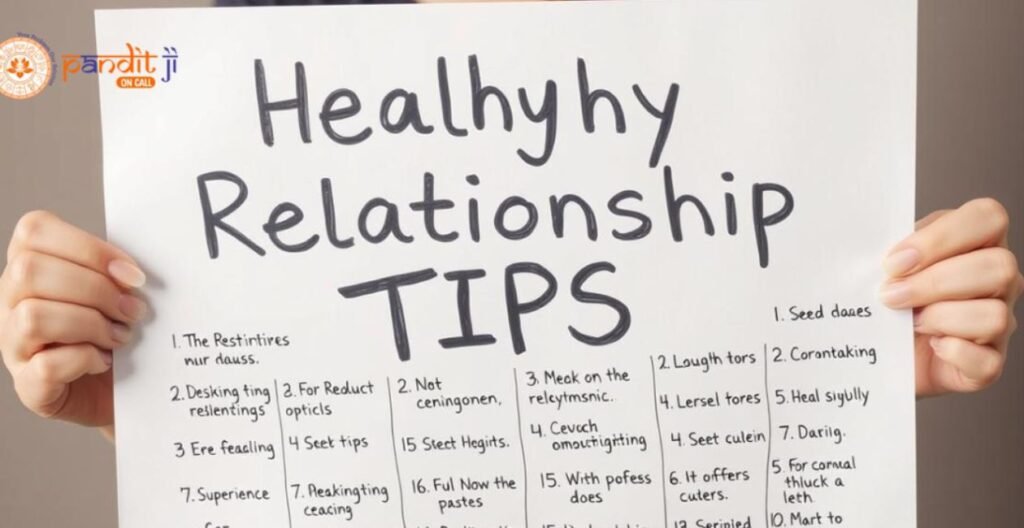 pandit जी
ON CALL
Healhyhy
Relationship
TIPS
1. The Restintires
nur dauss.
2. Desking ting
resllentings
3 Ere feadling
7. Superience
3. For Reduct
opticls
4 Seek tips
7. Peakingting
ceacing
2. Not
ceningonen,
15 Stect Hegirts.
16. Ful Now the
pastes
3. Meak on the
relcytmsnic.
4. Cevach
omouctighting
15. With pofess
does
2. Lougth tors
4. Lersel tores
4. Seet culein
6. It offers
cuters.
1. Seed daaes
2. Corontaking
5. Heal sigylly
7. Dariig.
5. For cormal
thluck a
leth.
10. Mart to